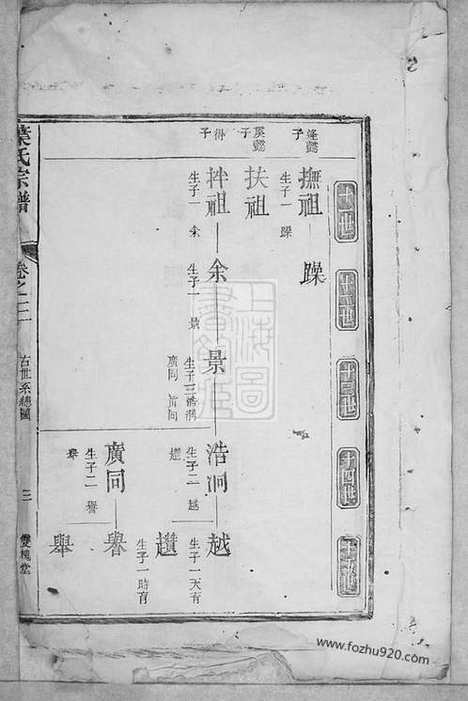 十一世
十二世
十三世
十四世
十五世
逢懿
子
撫祖
生子一
躁
躁
溪懿
子
扶祖
得
子
拌祖
生子一
余
余
生子一
景
景
生子三浩洞
廣同
浩洞
生子二
越
趲
越
生子一天有
趲
生子一時有
廣同
生子二
譽
舉
譽
舉
葉氏宗譜
卷之二
古世系總圖
三
雙槐堂
上海圖書館藏
www.fozhu920.com